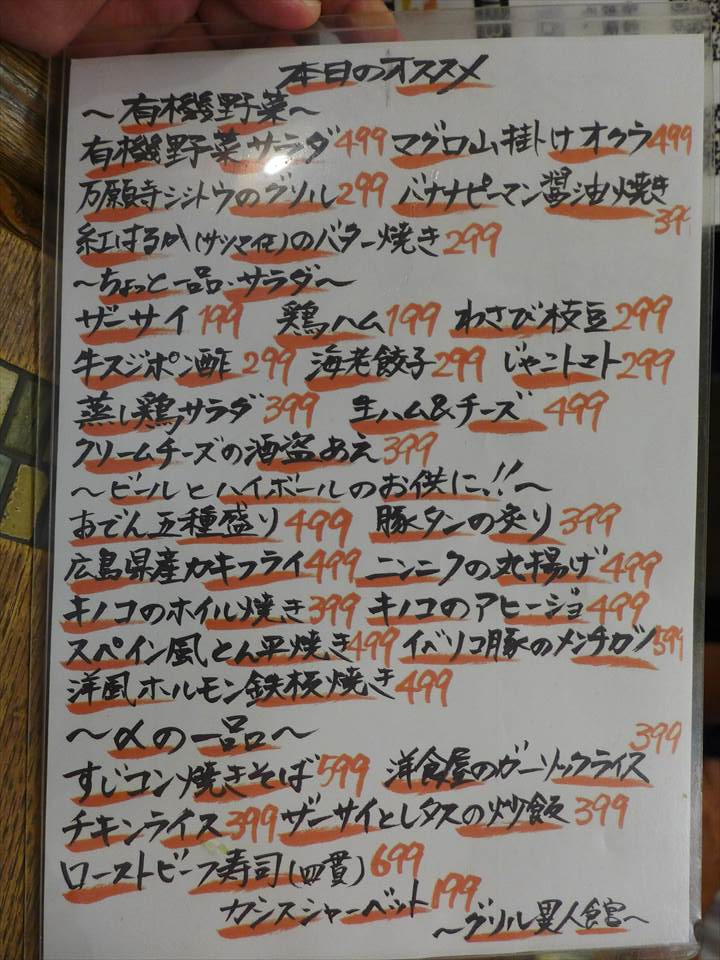 本日のオススメ
～有機野菜～
有機野菜サラダ499 マグロ山掛けオクラ499
万願寺シシトウのグリル299 バナナピーマン醤油焼き
紅はるか(サツマイモ)のバター焼き299
～ちょっと一品・サラダ～
ザーサイ199 鶏ハム199 わさび枝豆299
牛スジポン酢299 海老餃子299 じゃこトマト299
蒸し鶏サラダ399 生ハム&チーズ499
クリームチーズの酒盗あえ399
～ビールとハイボールのお供に!!～
おでん五種盛り499 豚タンの炙り399
広島県産カキフライ499 ニンニクの丸揚げ499
キノコのホイル焼き399 キノコのアヒージョ499
スペイン風とん平焼き499 イベリコ豚のメンチカツ599
洋風ホルモン鉄板焼き499
～〆の一品～
すじコン焼きそば599 洋食屋のガーリックライス399
チキンライス399 ザーサイとレタスの炒飯399
ローストビーフ寿司(四貫)699
カシスシャーベット199
～グリル異人食宮～